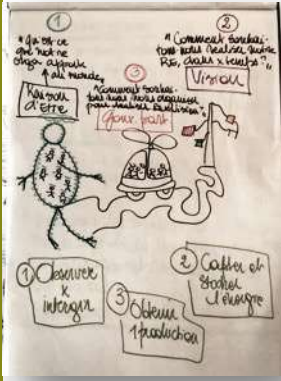 1
"Qu'est ce
que notre
orga apporte
au monde,
Raison
d'Être
2
"Comment souhai-
tons nous réaliser notre
RE, dans x temps?"
Vision
3
"Comment souhai-
tons nous nous organiser
pour
1 Observer
x
interagir
2 Capter et
stocker
l'énergie
3 Obtenir
1 production